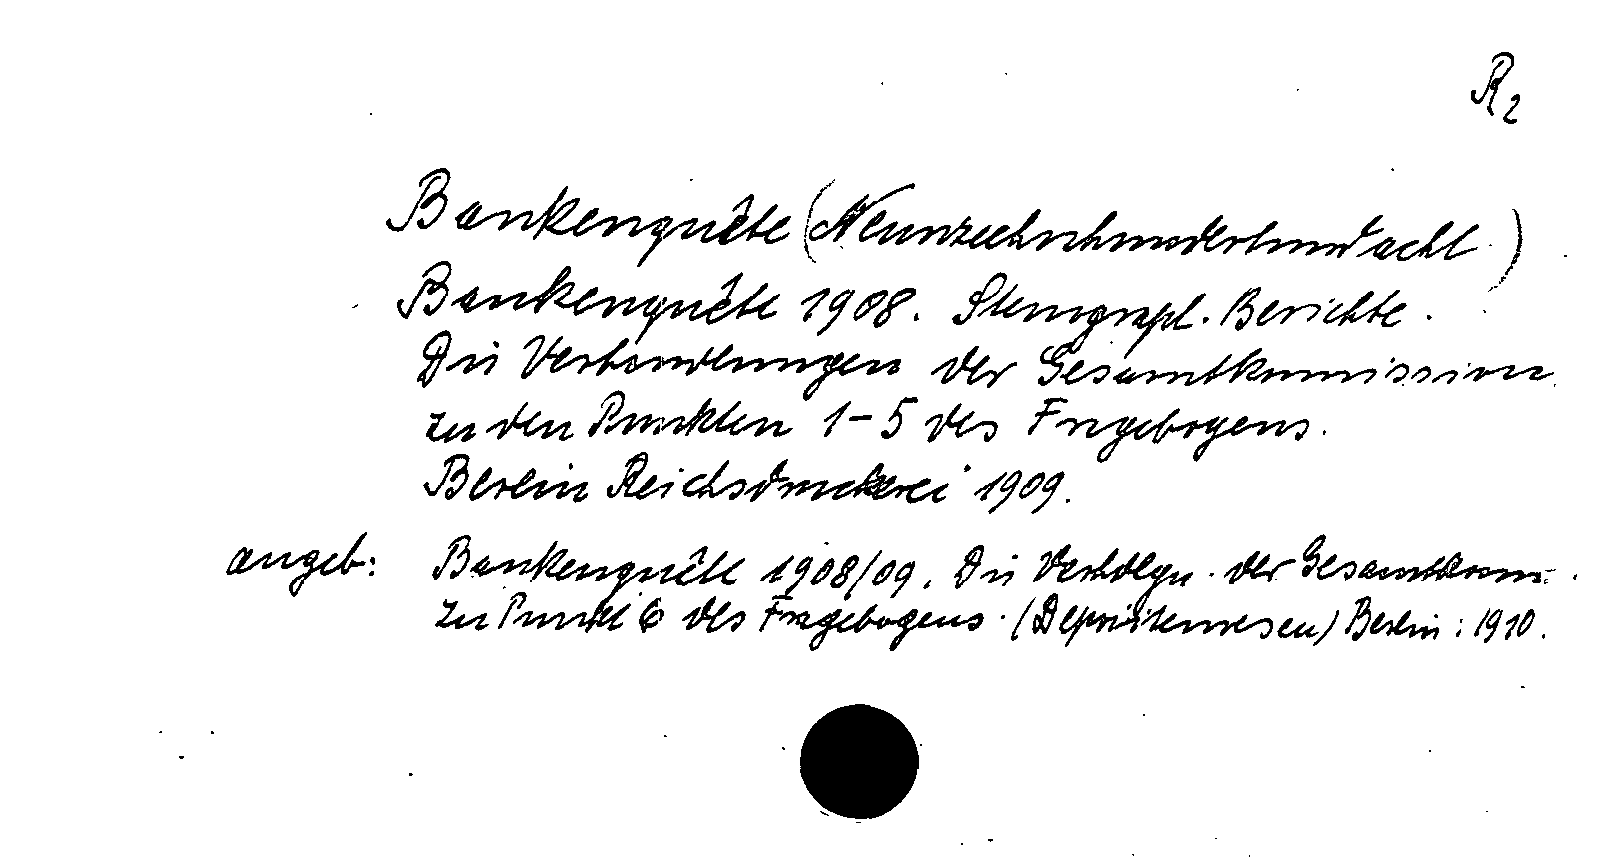 R2
Bankenquête (Neunzehnhundertundacht)
Bankenquête 1908. Stenograph. Berichte.
Die Verhandlungen der Gesamtkommission
zu den Punkten 1-5 des Fragebogens.
Berlin Reichsdruckerei 1909.
angeb: Bankenquête 1908/09. Die Verhdlgn. der Gesamtkomm.
zu Punkt 6 des Fragebogens. (Depositenwesen) Berlin: 1910.